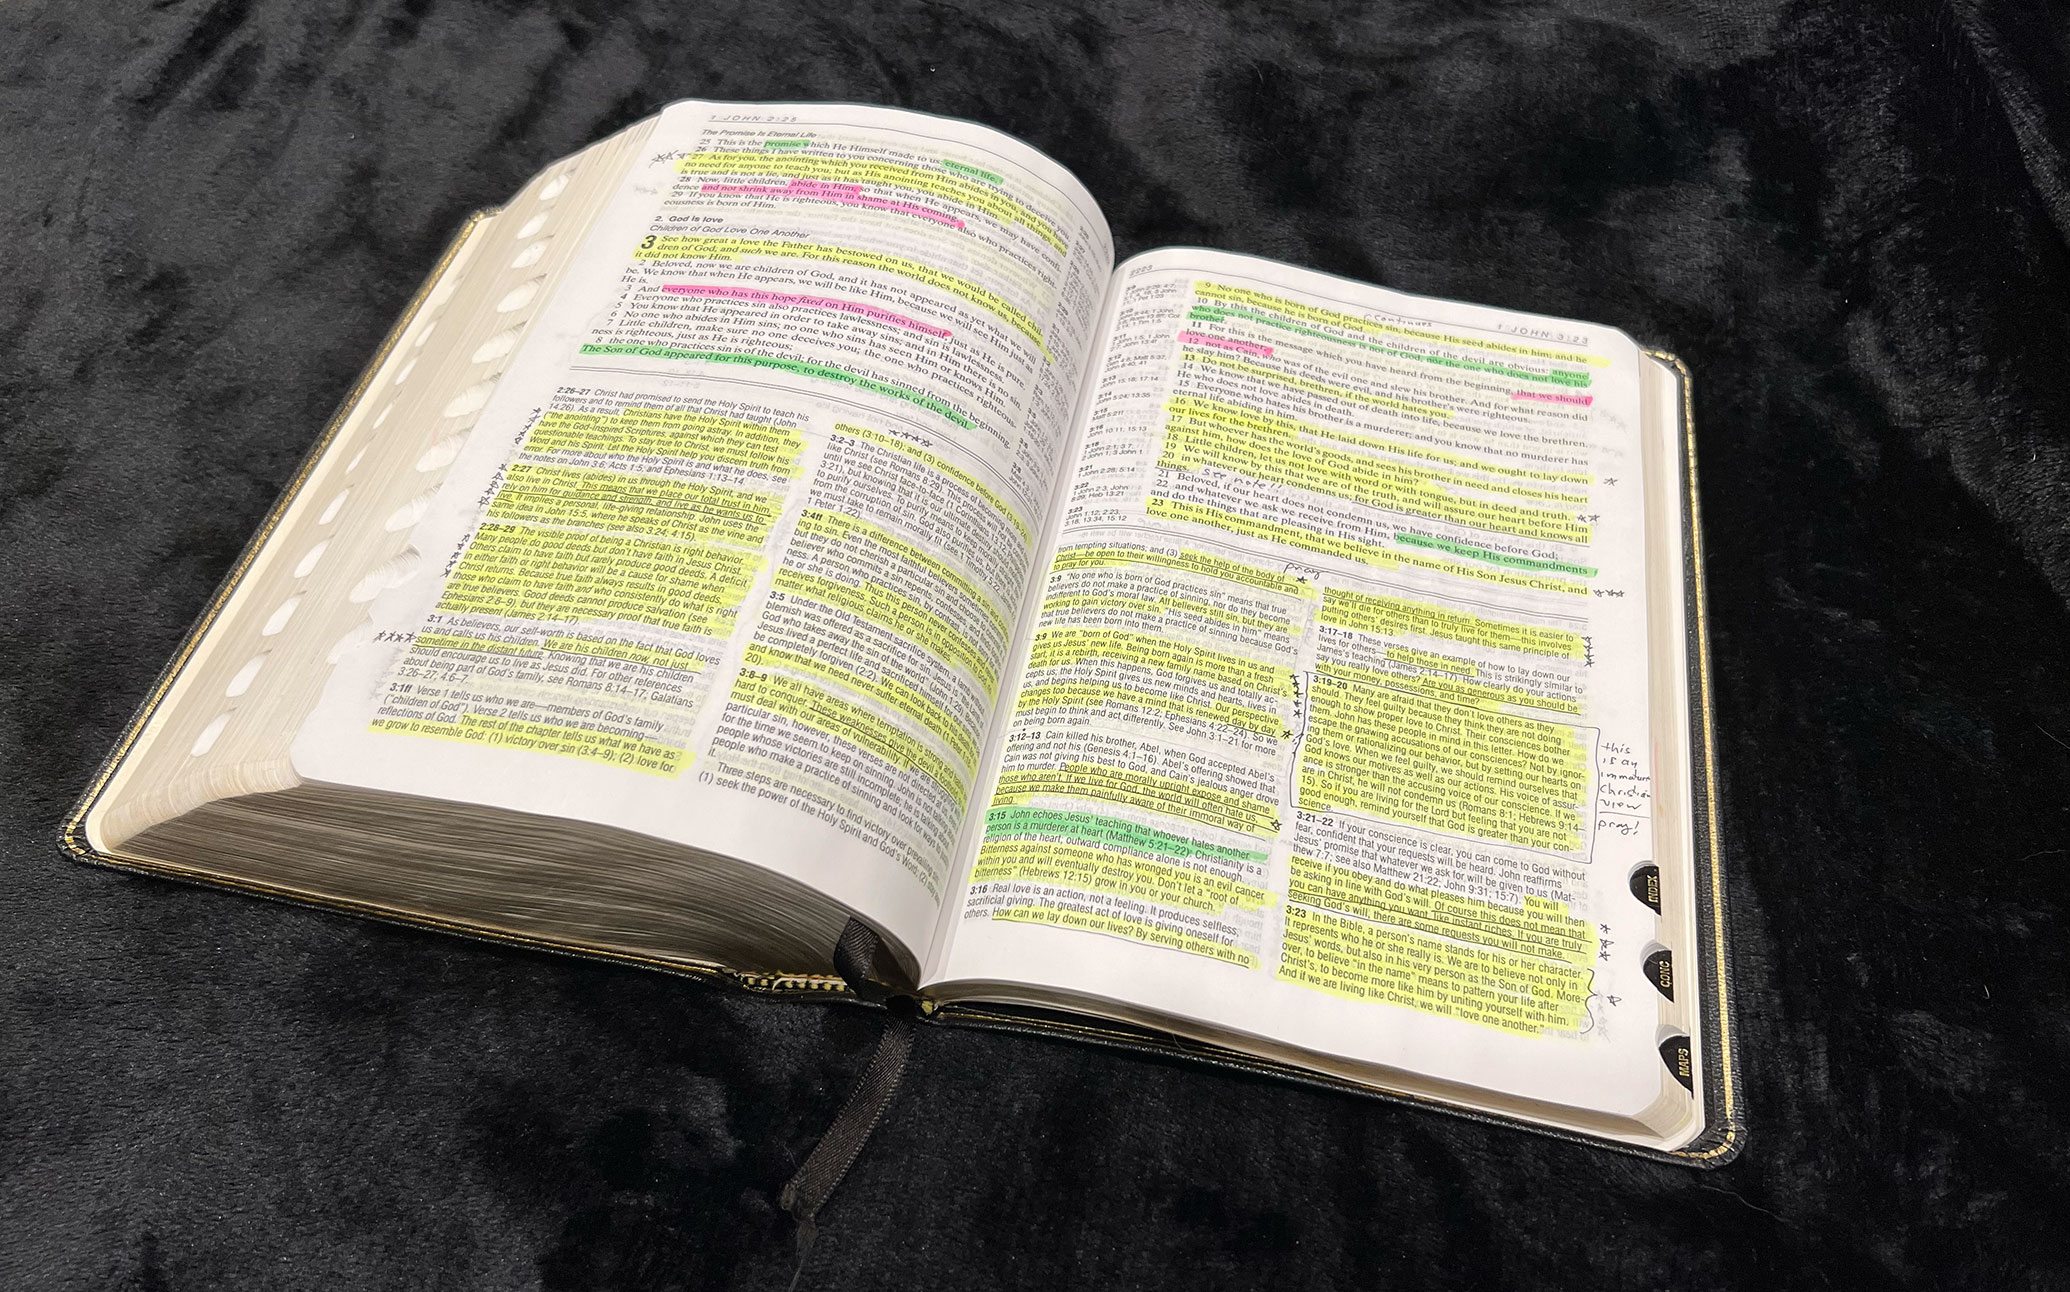 1 JOHN 2:25
The Promise Is Eternal Life
25 This is the promise which He Himself made to us: eternal life.
26 These things I have written to you concerning those who are trying to deceive you.
27 As for you, the anointing which you received from Him abides in you, and you have
no need for anyone to teach you; but as His anointing teaches you about all things, and
is true and is not a lie, and just as it has taught you, you abide in Him.
28 Now, little children, abide in Him, so that when He appears, we may have confi-
dence and not shrink away from Him in shame at His coming.
29 If you know that He is righteous, you know that everyone also who practices right-
eousness is born of Him.
2. God is love
Children of God Love One Another
3 See how great a love the Father has bestowed on us, that we would be called chil-
dren of God; and such we are. For this reason the world does not know us, because
it did not know Him.
2 Beloved, now we are children of God, and it has not appeared as yet what we will
be. We know that when He appears, we will be like Him, because we will see Him just as
He is.
3 And everyone who has this hope fixed on Him purifies himself, just as He is pure.
4 Everyone who practices sin also practices lawlessness; and sin is lawlessness.
5 You know that He appeared in order to take away sins; and in Him there is no sin.
6 No one who abides in Him sins; no one who sins has seen Him or knows Him.
7 Little children, make sure no one deceives you; the one who practices righteous-
ness is righteous, just as He is righteous;
8 the one who practices sin is of the devil; for the devil has sinned from the beginning.
The Son of God appeared for this purpose, to destroy the works of the devil.
2:26-27 Christ had promised to send the Holy Spirit to teach his
followers and to remind them of all that Christ had taught (John
14:26). As a result, Christians have the Holy Spirit within them
("the anointing") to keep them from going astray. In addition, they
have the God-inspired Scriptures, against which they can test
questionable teachings. To stay true to Christ, we must follow his
Word and his Spirit. Let the Holy Spirit help you discern truth from
error. For more about who the Holy Spirit is and what he does, see
the notes on John 3:6; Acts 1:5; and Ephesians 1:13-14
2:27 Christ lives (abides) in us through the Holy Spirit, and we
also live in Christ. This means that we place our total trust in him,
rely on him for guidance and strength, and live as he wants us to
live. It implies a personal, life-giving relationship. John uses the
same idea in John 15:5, where he speaks of Christ as the vine and
his followers as the branches (see also 3:24; 4:15).
2:28-29 The visible proof of being a Christian is right behavior.
Many people do good deeds but don't have faith in Jesus Christ.
Others claim to have faith but rarely produce good deeds. A deficit
in either faith or right behavior will be a cause for shame when
Christ returns. Because true faith always results in good deeds,
those who claim to have faith and who consistently do what is right
are true believers. Good deeds cannot produce salvation (see
Ephesians 2:8-9), but they are necessary proof that true faith is
actually present (James 2:14-17).
3:1 As believers, our self-worth is based on the fact that God loves
us and calls us his children. We are his children now, not just
sometime in the distant future. Knowing that we are his children
should encourage us to live as Jesus did. For other references
about being part of God's family, see Romans 8:14-17; Galatians
3:26-27; 4:6-7
3:1ff Verse 1 tells us who we are—members of God's family
("children of God"). Verse 2 tells us who we are becoming—
reflections of God. The rest of the chapter tells us what we have as
we grow to resemble God: (1) victory over sin (3:4-9); (2) love for
others (3:10-18); and (3) confidence before God (3:19-24).
3:2-3 The Christian life is a process of becoming
like Christ (see Romans 8:29). This process will
until we see Christ face-to-face (1 Corinthians 13:12
3:21), but knowing that it is our ultimate
to purify ourselves. To purify means to keep
from the corruption of sin. God also purifies
we must take to remain morally fit (see 1 Timothy 5:22
Peter 1:22)
3:4ff There is a difference between committing a sin and
ing to sin. Even the most faithful believers sometimes
but they do not cherish a particular sin and choose to
believer who commits a sin repents, confesses, and
ness. A person who practices sin, by contrast,
he or she is doing. Thus this person never confesses and
receives forgiveness. Such a person is in opposition
matter what religious claims he or she makes
3:5 Under the Old Testament sacrifice system, a lamb without
blemish was offered as a sacrifice for sin. Jesus is
God who takes away the sin of the world" (John 1:29).
Jesus lived a perfect life and sacrificed himself for
be completely forgiven (2:2). We can look back to
and know that we need never suffer eternal death (1 Peter
20).
3:8-9 We all have areas where temptation is strong and
hard to conquer. These weaknesses give the devil
must deal with our areas of vulnerability. If we are
particular sin, however, these verses are not directed at
for the time we seem to keep on sinning. John is not
people whose victories are still incomplete; he is talking
people who make a practice of sinning and look for ways
it.
Three steps are necessary to find victory over prevailing
(1) seek the power of the Holy Spirit and God's Word; (2)
2223
1 JOHN 3:23
9 No one who is born of God practices sin, because His seed abides in him; and he
cannot sin, because he is born of God.
continues
10 By this the children of God and the children of the devil are obvious: anyone
who does not practice righteousness is not of God, nor the one who does not love his
brother.
11 For this is the message which you have heard from the beginning, that we should
love one another;
12 not as Cain, who was of the evil one and slew his brother. And for what reason did
he slay him? Because his deeds were evil, and his brother's were righteous.
13 Do not be surprised, brethren, if the world hates you.
14 We know that we have passed out of death into life, because we love the brethren.
He who does not love abides in death.
15 Everyone who hates his brother is a murderer; and you know that no murderer has
eternal life abiding in him.
16 We know love by this, that He laid down His life for us; and we ought to lay down
our lives for the brethren.
17 But whoever has the world's goods, and sees his brother in need and closes his heart
against him, how does the love of God abide in him?
18 Little children, let us not love with word or with tongue, but in deed and truth.
19 We will know by this that we are of the truth, and will assure our heart before Him
20 in whatever our heart condemns us; for God is greater than our heart and knows all
things. see note!
21 Beloved, if our heart does not condemn us, we have confidence before God;
22 and whatever we ask we receive from Him, because we keep His commandments
and do the things that are pleasing in His sight.
23 This is His commandment, that we believe in the name of His Son Jesus Christ, and
love one another, just as He commanded us.
from tempting situations; and (3) seek the help of the body of
Christ—be open to their willingness to hold you accountable and
to pray for you.
pray
3:9 "No one who is born of God practices sin" means that true
believers do not make a practice of sinning, nor do they become
indifferent to God's moral law. All believers still sin, but they are
working to gain victory over sin. "His seed abides in him" means
that true believers do not make a practice of sinning because God's
new life has been born into them.
3:9 We are "born of God" when the Holy Spirit lives in us and
gives us Jesus' new life. Being born again is more than a fresh
start; it is a rebirth, receiving a new family name based on Christ's
death for us. When this happens, God forgives us and totally ac-
cepts us; the Holy Spirit gives us new minds and hearts, lives in
us, and begins helping us to become like Christ. Our perspective
changes too because we have a mind that is renewed day by day
by the Holy Spirit (see Romans 12:2; Ephesians 4:22-24). So we
must begin to think and act differently. See John 3:1-21 for more
on being born again.
3:12-13 Cain killed his brother, Abel, when God accepted Abel's
offering and not his (Genesis 4:1-16). Abel's offering showed that
Cain was not giving his best to God, and Cain's jealous anger drove
him to murder. People who are morally upright expose and shame
those who aren't. If we live for God, the world will often hate us,
because we make them painfully aware of their immoral way of
living.
3:15 John echoes Jesus' teaching that whoever hates another
person is a murderer at heart (Matthew 5:21-22). Christianity is a
religion of the heart; outward compliance alone is not enough.
Bitterness against someone who has wronged you is an evil cancer
within you and will eventually destroy you. Don't let a "root of
bitterness" (Hebrews 12:15) grow in you or your church.
3:16 Real love is an action, not a feeling. It produces selfless,
sacrificial giving. The greatest act of love is giving oneself for
others. How can we lay down our lives? By serving others with no
thought of receiving anything in return. Sometimes it is easier to
say we'll die for others than to truly live for them—this involves
putting others' desires first. Jesus taught this same principle of
love in John 15:13.
3:17-18 These verses give an example of how to lay down our
lives for others—to help those in need. This is strikingly similar to
James's teaching (James 2:14-17). How clearly do your actions
say you really love others? Are you as generous as you should be
with your money, possessions, and time?
3:19-20 Many are afraid that they don't love others as they
should. They feel guilty because they think they are not doing
enough to show proper love to Christ. Their consciences bother
them. John has these people in mind in this letter. How do we
escape the gnawing accusations of our consciences? Not by ignor-
ing them or rationalizing our behavior, but by setting our hearts on
God's love. When we feel guilty, we should remind ourselves that
God knows our motives as well as our actions. His voice of assur-
ance is stronger than the accusing voice of our conscience. If we
are in Christ, he will not condemn us (Romans 8:1; Hebrews 9:14-
15). So if you are living for the Lord but feeling that you are not
good enough, remind yourself that God is greater than your con-
science.
this
is an
immature
Christian
view
pray!
3:21-22 If your conscience is clear, you can come to God without
fear, confident that your requests will be heard. John reaffirms
Jesus' promise that whatever we ask for will be given to us (Mat-
thew 7:7; see also Matthew 21:22; John 9:31; 15:7). You will
receive if you obey and do what pleases him because you will then
be asking in line with God's will. Of course this does not mean that
you can have anything you want, like instant riches. If you are truly
seeking God's will, there are some requests you will not make.
3:23 In the Bible, a person's name stands for his or her character.
It represents who he or she really is. We are to believe not only in
Jesus' words, but also in his very person as the Son of God. More-
over, to believe "in the name" means to pattern your life after
Christ's, to become more like him by uniting yourself with him.
And if we are living like Christ, we will "love one another."
INDEX
CONC
MAPS